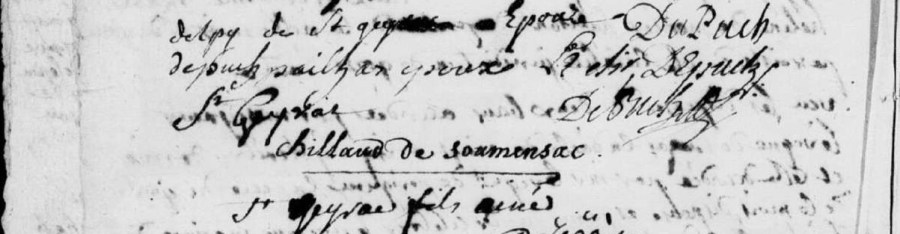 delpy de St Geyrac Epouse DuPuch
depuch sailhan epoux DEpuch
St Geyrac DePuch
chillaud de soumensac
St Geyrac fils ainé